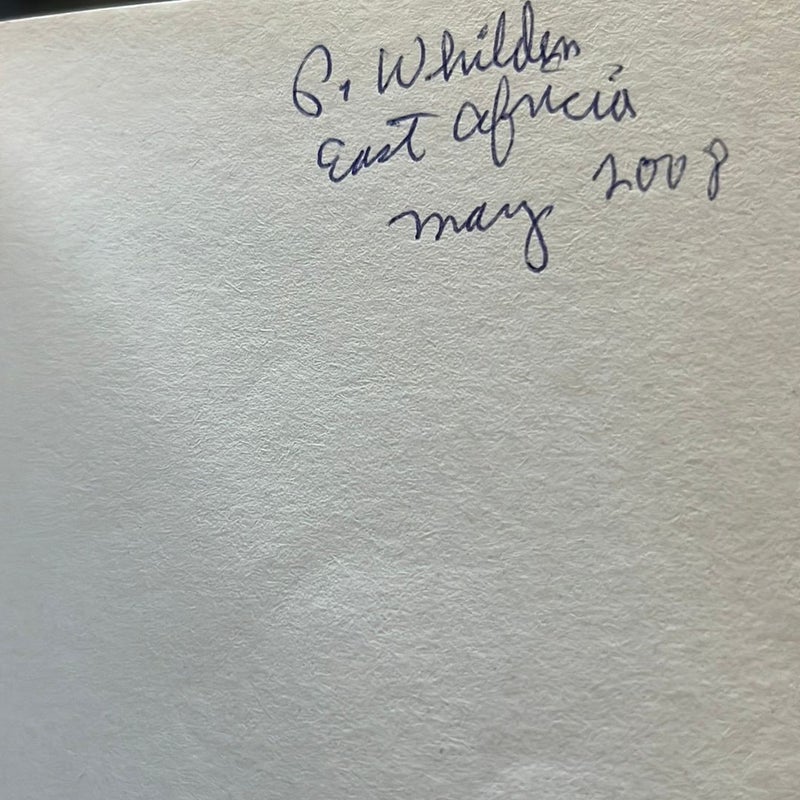 P. Whilden
East Africia
May 2008